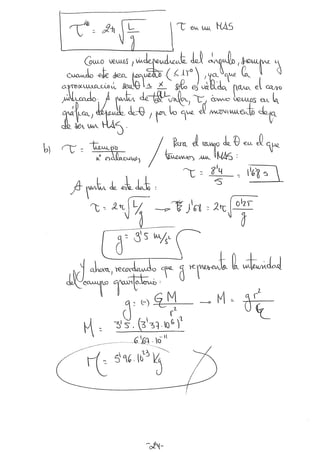 T = 2π √(L/g) T en un MAS
Como vemos, independiente del ángulo, siempre y
cuando este sea pequeño (≤ 15°), ya que la
aproximación senθ ≈ x/L sólo es válida para el caso
indicado. A partir de tal valor, T, como vemos en la
gráfica, depende de θ, por lo que el movimiento deja
de ser un MAS.
b) T = tiempo / nº oscilaciones / Para el rango de θ en el que
tenemos un MAS:
T = 8'4 / 5 = 1'68 s
A partir de este dato:
T = 2π √(L/g) → 1'68 = 2π √(0'25/g)
g = 3'5 m/s²
Y ahora, recordando que g representa la intensidad
del campo gravitatorio:
g = (-) G M / r² → M = g r² / G
M = 3'5 · (3'37·10⁶)² / 6'67·10⁻¹¹
M = 5'96·10²³ kg
-24-